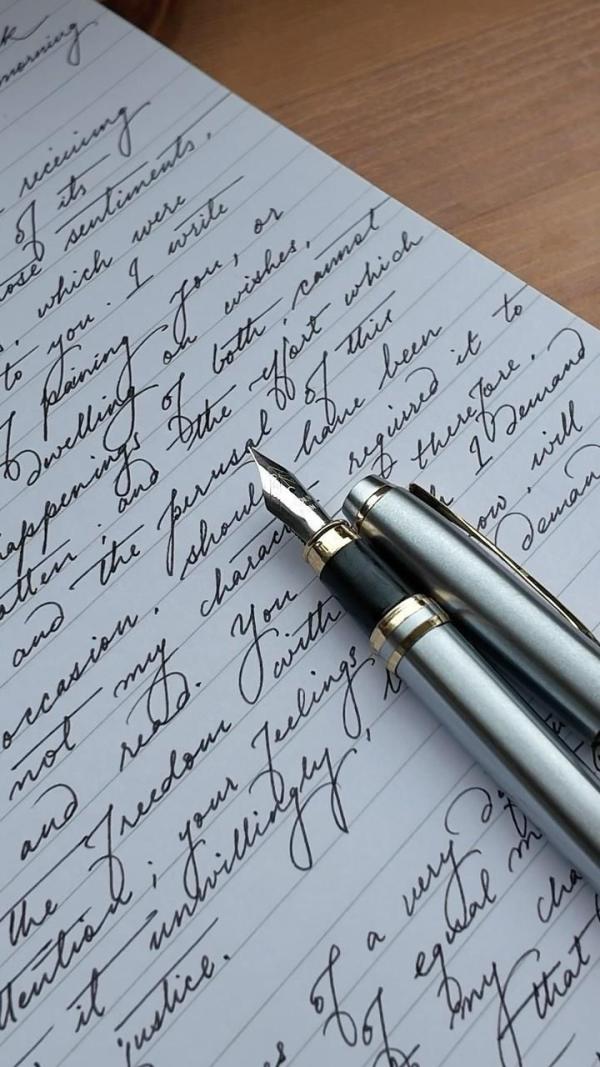 morning
receiving
of its
sentiments,
, which were
to you. I write
of paining you, or
Dwelling on wishes,
happenings of both, cannot
; and the effort which
and the perusal of this
occasion, should have been
not my required it to
and read. You therefore,
the freedom with I Demand
; your feelings will
it unwillingly,
justice.
of a very
of equal
my
that